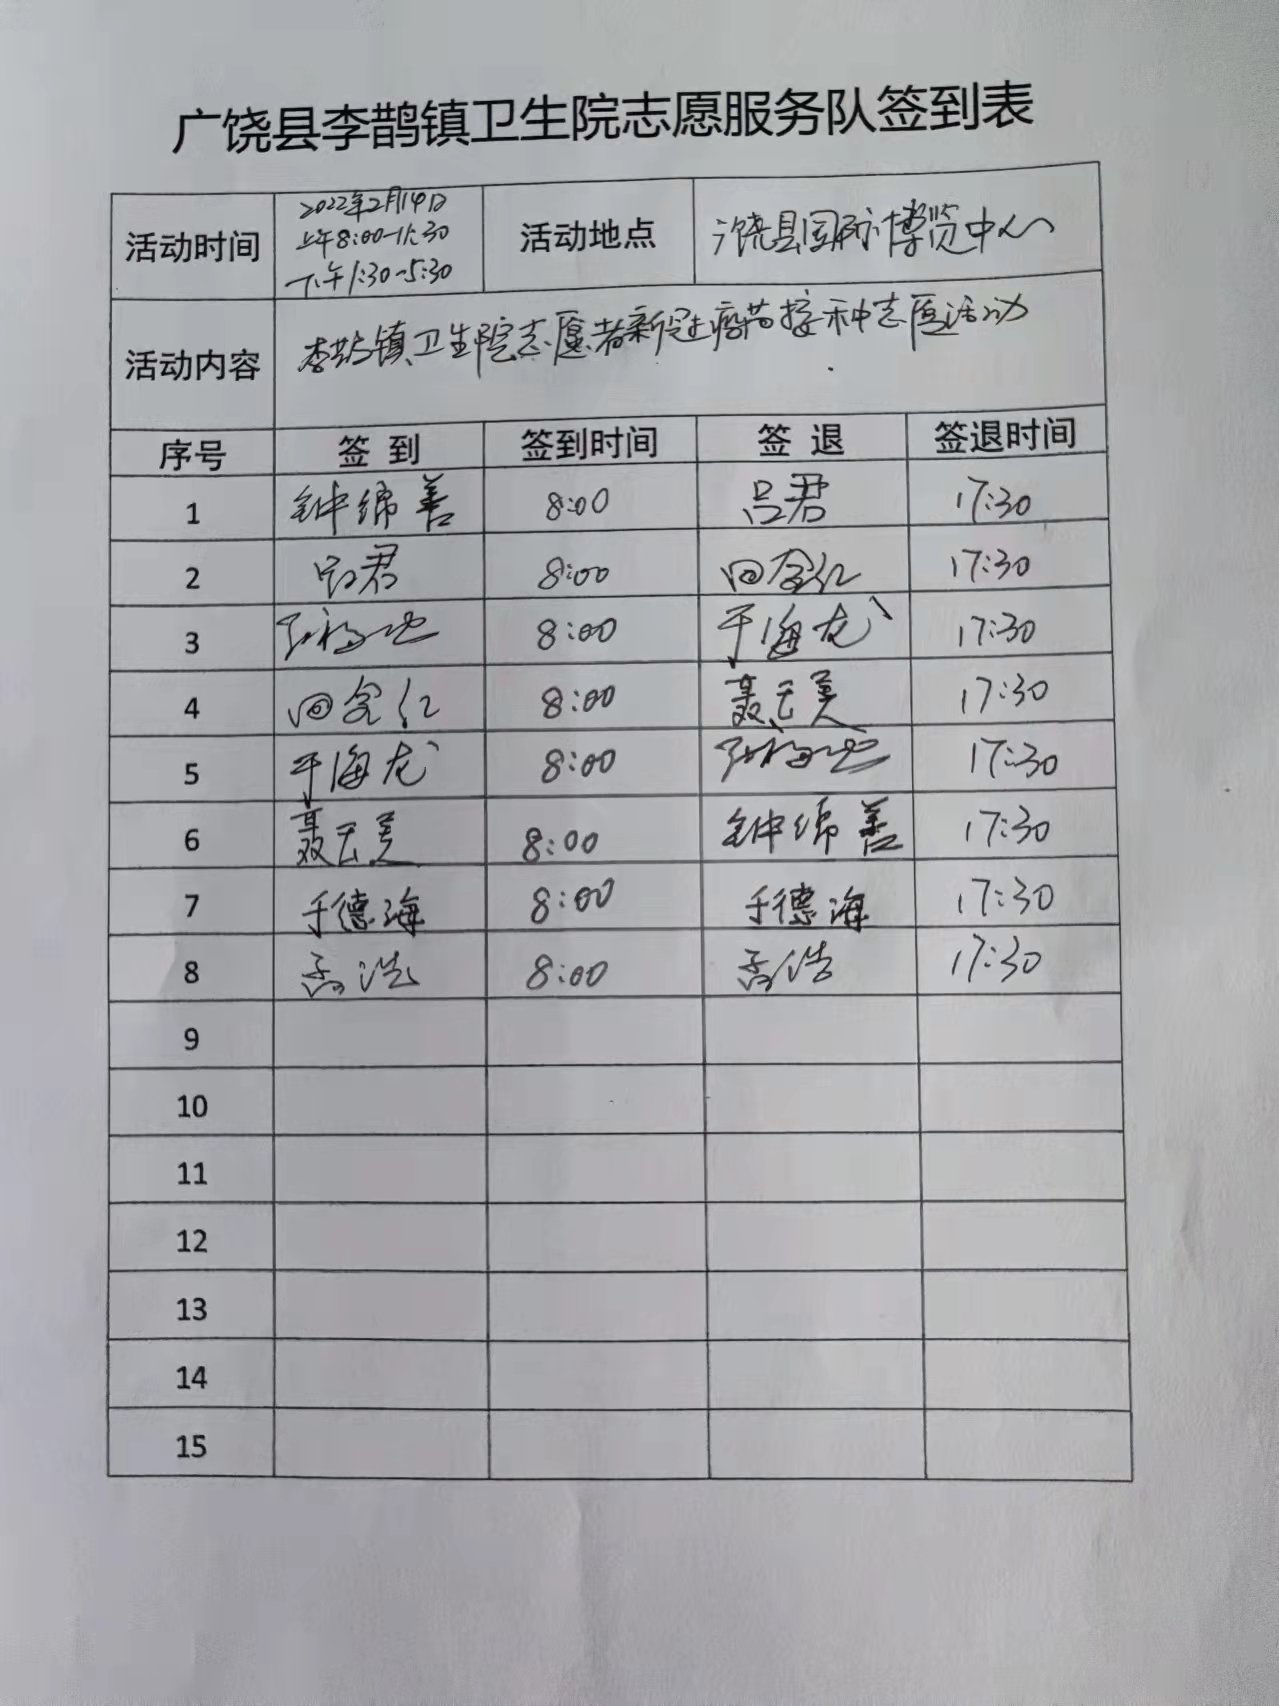 广饶县李鹊镇卫生院志愿服务队签到表
活动时间 2022年2月14日 上午8:00-11:30 下午1:30-5:30 活动地点 广饶县国际博览中心
活动内容 李鹊镇卫生院志愿者新冠疫苗接种志愿活动
序号 签到 签到时间 签退 签退时间
1 钟绵善 8:00 吕君 17:30
2 吕君 8:00 17:30
3 8:00 于海龙 17:30
4 8:00 聂云美 17:30
5 于海龙 8:00 17:30
6 聂云美 8:00 钟绵善 17:30
7 于德海 8:00 于德海 17:30
8 孟浩 8:00 孟浩 17:30
9
10
11
12
13
14
15